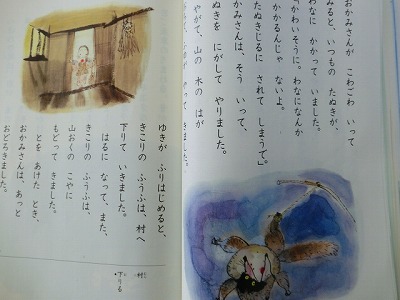 おかみさんが こわごわ いって
みると、いつもの たぬきが、
わなに かかって いました。
「かわいそうに。わなになんか
かかるんじゃ ないよ。
たぬきじるに されて しまうで。」
おかみさんは、そう いって、
たぬきを にがして やりました。
やがて、山の 木の はが
ゆきが ふりはじめると、
きこりの ふうふは、村へ
下りて いきました。
はるに なって、また、
きこりの ふうふは、
山おくの こやに
もどって きました。
とを あけた とき、
おかみさんは、あっと
おどろきました。
村
下りる